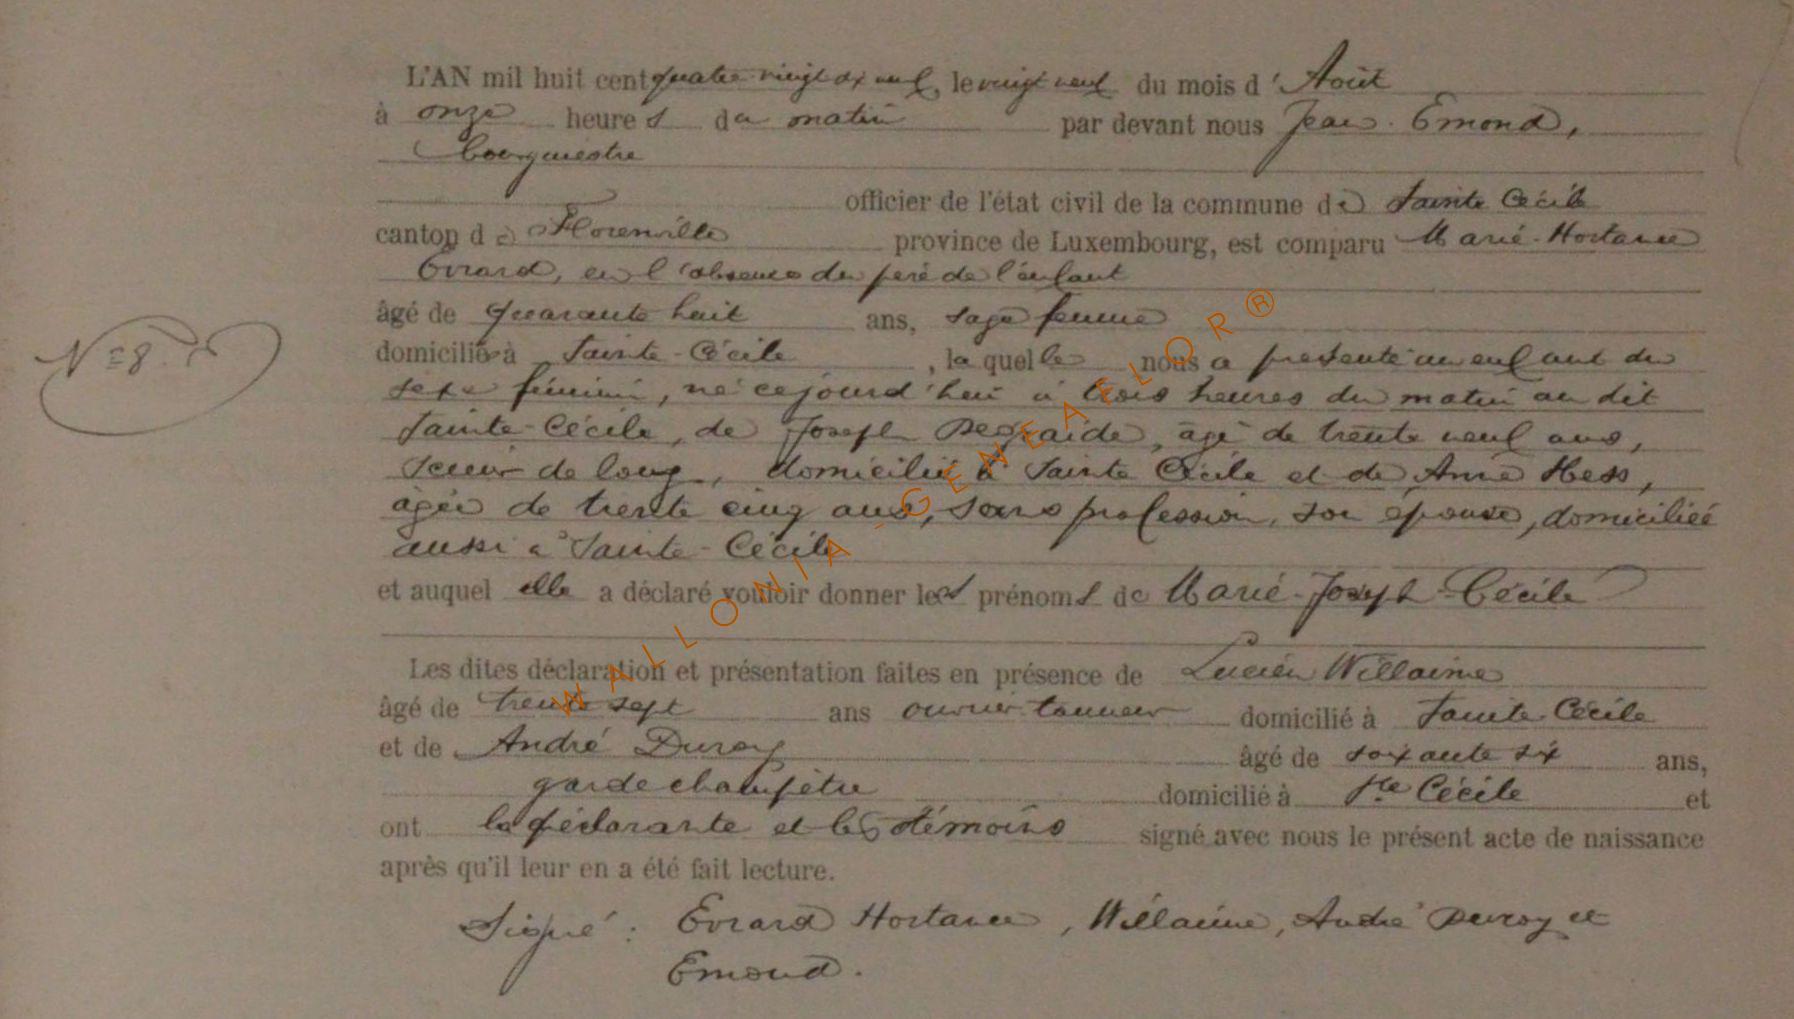 L'AN mil huit cent quatre vingt dix neuf, le vingt neuf du mois d'Août
à onze heures du matin par devant nous Jean Emond,
bourgmestre
officier de l'état civil de la commune de Sainte Cécile
canton de Florenville province de Luxembourg, est comparu Marie-Hortance
Evrard, en l'absence du père de l'enfant
âgé de quarante huit ans, sage femme
domiciliée à Sainte-Cécile, la quelle nous a présenté un enfant du
N° 8
sexe féminin, né cejourd'hui à trois heures du matin au dit
Sainte-Cécile, de Joseph âgé de trente neuf ans,
Scieur de long, domicilié à Sainte Cécile et de Anne Hess,
âgée de trente cinq ans, sans profession, son épouse, domiciliée
aussi à Sainte-Cécile
et auquel elle a déclaré vouloir donner les prénoms de Marie-Joseph-Cécile
Les dites déclaration et présentation faites en présence de Lucien Willaime
âgé de trente sept ans ouvrier tanneur domicilié à Sainte Cécile
et de André Duroy âgé de soixante six ans,
garde champêtre domicilié à Ste Cécile et
ont la déclarante et les témoins signé avec nous le présent acte de naissance
après qu'il leur en a été fait lecture.
Signé: Evrard Hortance, Willaime, André Duroy et
Emond.
WALLONIA-GENEAFLOR®